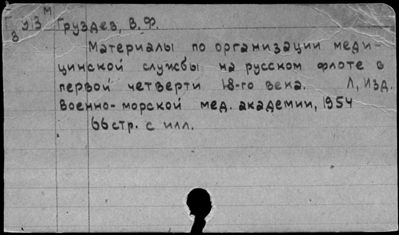 М Груздев, В.Ф.
Материалы по организации меди-
цинской службы на русском флоте в
первой четверти 18-го века. Л, Изд.
Военно-морской мед. академии, 1954
66стр. с илл.